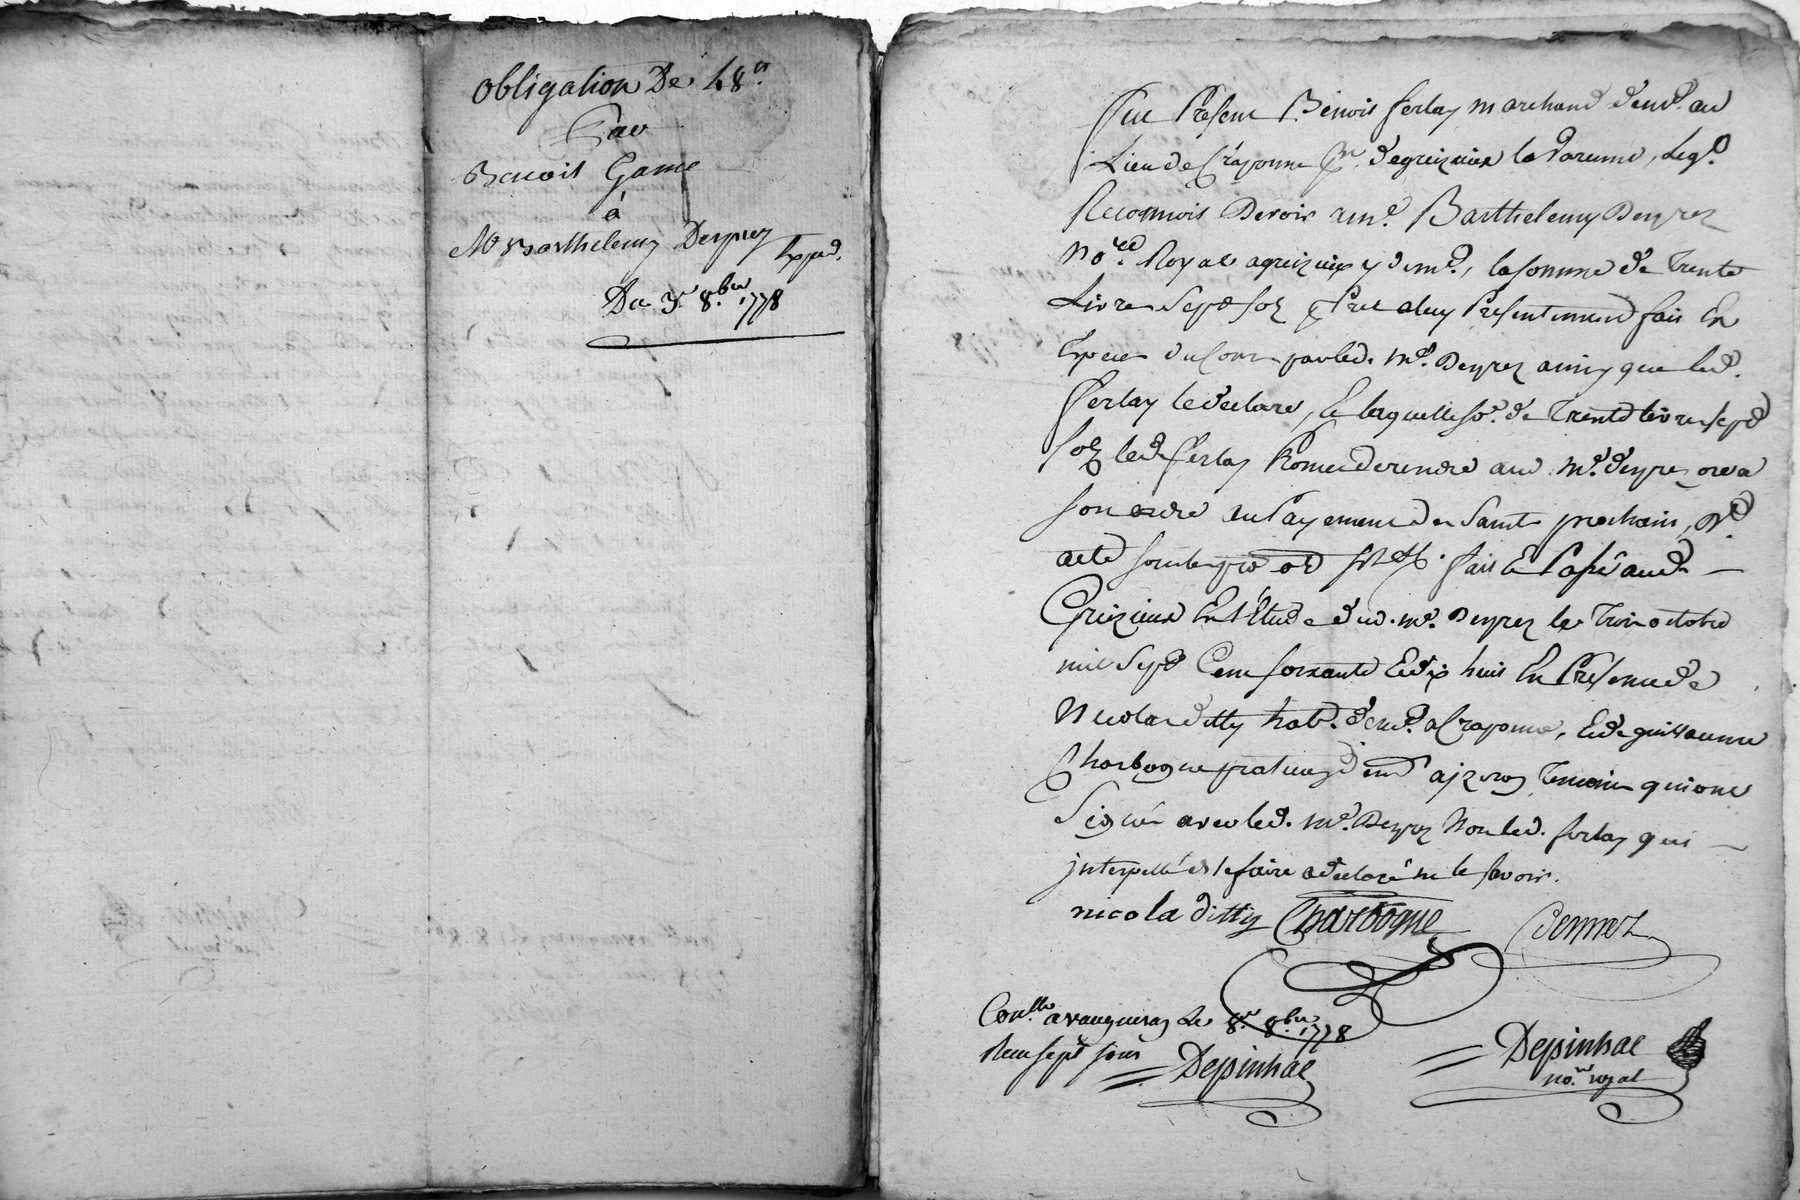 Obligation De 48ᵗˢ
Par
Benoit Game
à
Mᵉ Barthelemy Deyrez
Exped.
Du 3ᵉ 8.ᵇʳᵉ 1778
Fut Présent Benois ferlay marchand demt. au
Lieu de Craponne psse. degreizieux la Varenne, Leql.
Reconnois Devoir a me. Barthelemy Deyrez
nore. Royal agreizieux y demt., lasomme de Trente
Livre Sept sol pret aluy Présentement fait En
Espece du Cour par led. me. Deyrez ainsy que led.
ferlay le declare, et laquelle so. de Trente livre sept
sols led ferlay Promet derendre aud me. deyrez ou a
son ordre au Payement des Saint prochain,
acte fait et Passé aud
Greizieux En l'Etude dud. me. Deyrez le Trois octobre
mil Sept Cent soixante Et dix huit En Présence de
Nicolas ditty habt. demt. a Craponne, Et de guillaume
Charbogne praticien demt aizeron Temoins qui ont
Signé avec led. me. Deyrez Non led. ferlay qui
interpellé de le faire a declaré ne le savoir.
nicola dittiy Charbogne Deyrez
Conllé. avaugneray Le 8e 8.bre 1778
Reçu sept sous Depinhac
Depinhac
no.re royal